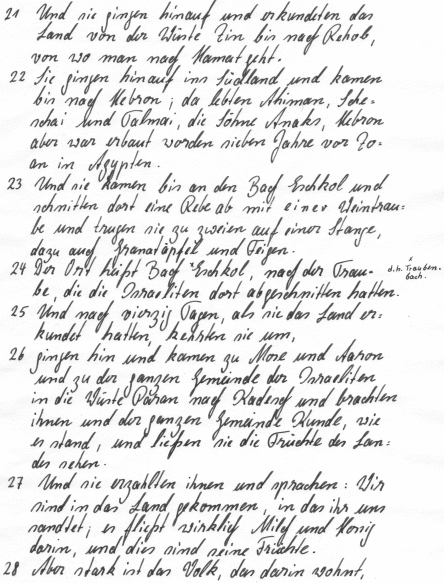 21 Und sie gingen hinauf und erkundeten das
Land von der Wüste Zin bis nach Rehob,
von wo man nach Hamat geht.
22 Sie gingen hinauf ins Südland und kamen
bis nach Hebron; da lebten Ahiman, Sche-
schai und Talmai, die Söhne Anaks, Hebron
aber war erbaut worden sieben Jahre vor Zo-
an in Ägypten.
23 Und sie kamen bis an den Bach Eschkol und
schnitten dort eine Rebe ab mit einer Weintrau-
be und trugen sie zu zweien auf einer Stange,
dazu auch Granatäpfel und Feigen.
24 Der Ort heißt Bach *Eschkol, nach der Trau-
be, die die Israeliten dort abgeschnitten hatten.
* d.h. Trauben-
bach.
25 Und nach vierzig Tagen, als sie das Land er-
kundet hatten, kehrten sie um,
26 gingen hin und kamen zu Mose und Aaron
und zu der ganzen Gemeinde der Israeliten
in die Wüste Paran nach Kadesch und brachten
ihnen und der ganzen Gemeinde Kunde, wie
es stand, und ließen sie die Früchte des Lan-
des sehen.
27 Und sie erzählten ihnen und sprachen: Wir
sind in das Land gekommen, in das ihr uns
sandtet; es fließt wirklich Milch und Honig
darin, und dies sind seine Früchte.
28 Aber stark ist das Volk, das darin wohnt,